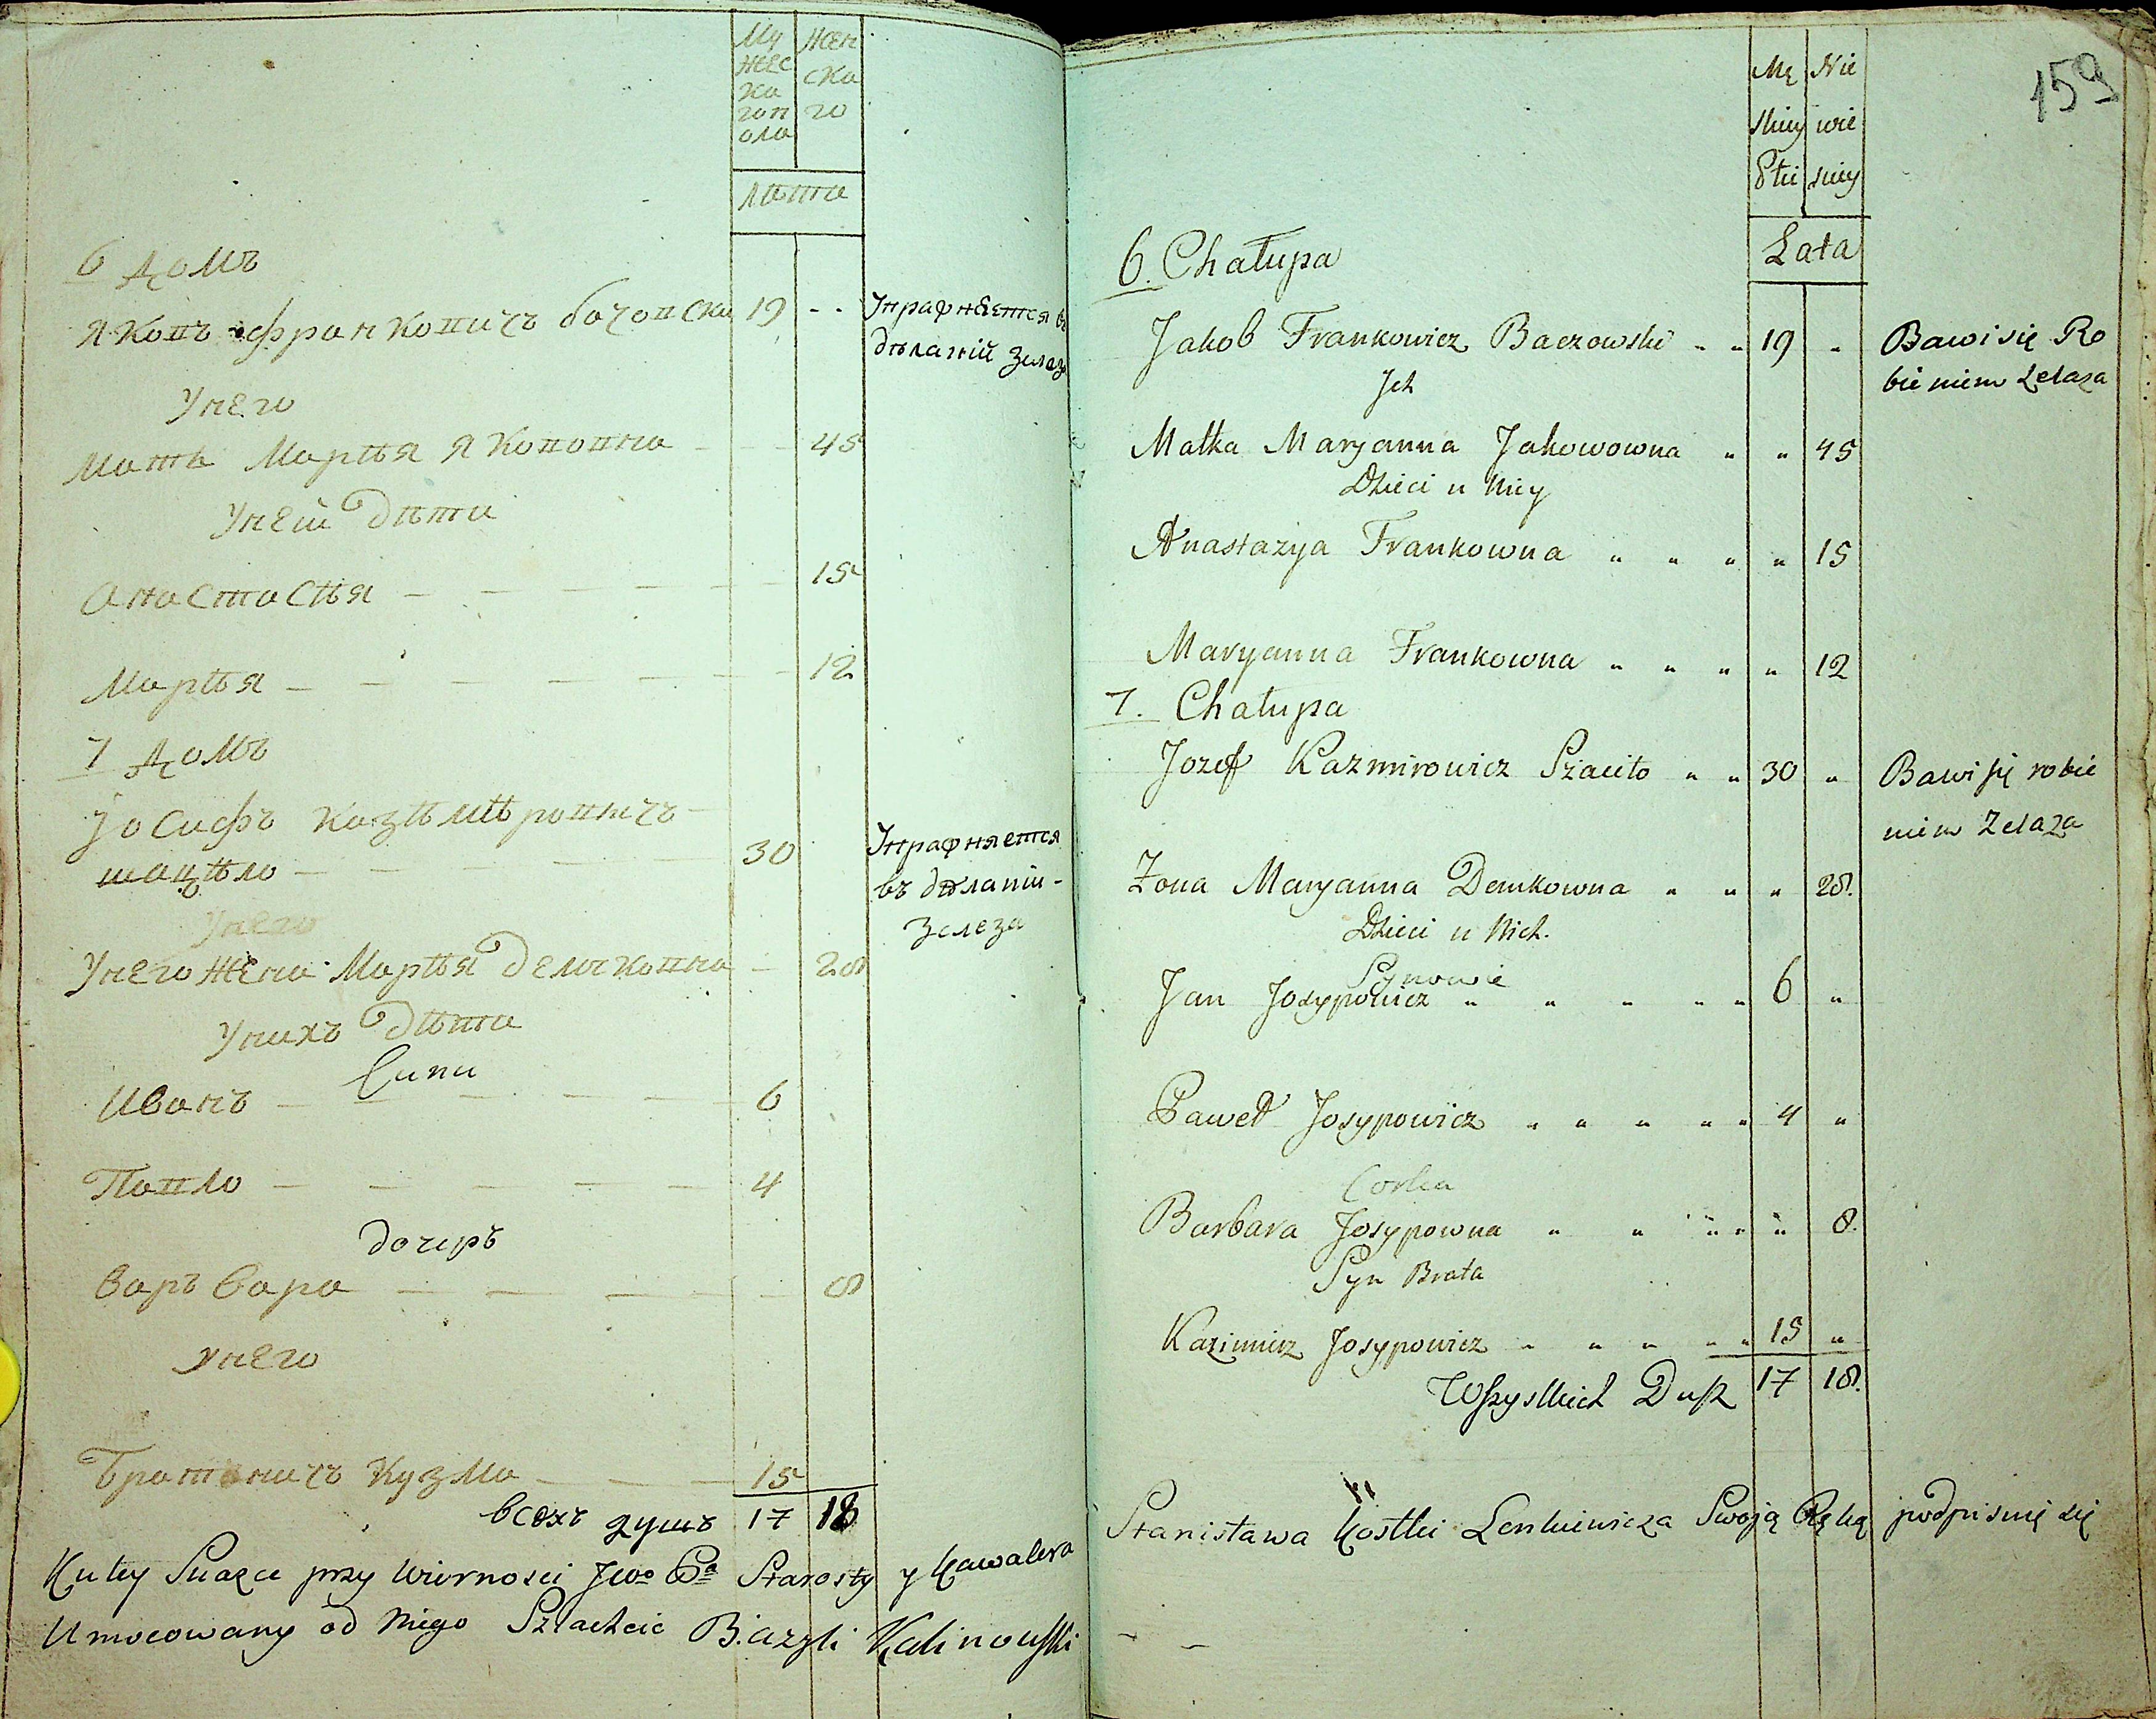 Му Жен
жес ска
ка го
гоп
ола
Лѣта
6 домъ
Якопъ Франкопичъ бочопски 19 - - Упрафняется въ
дѣланій зилеза
Унего
Мать Марѣя Якопопна - - 45
Уней дѣти
Анастасѣя - - - - 15
Марѣя - - - - - 12
7 домъ
Јосифъ казѣмѣропичъ -
шацѣло - - - 30 Упрафняется
въ дѣланіи -
Зелеза
Унего
Унего жена Марѣя демкопна - 28
Унихъ дѣти
Сини
Иванъ - - - - - 6
Попло - - - - - 4
дочеръ
Варъвара - - - - 8
Унего
Братаничъ Кузма - - - 15
Всехъ душъ 17 18
Kutey Suazce przy Wiernosci Jwo Pa Starosty y Kawalera
Umocowany od niego Szlachcic Bazyli Kalinowski
159
Mę Nie
skiey wie
Płci sciey
Lata
6. Chałupa
Jakob Frankowicz Baczowski " " 19 " Bawi się Ro
bieniem Zelaza
Jch
Matka Maryanna Jakowowna " " 45
Dzieci u Niey
Anastazya Frankowna " " " " 15
Maryanna Frankowna " " " " 12
7. Chałupa
Jozef Kazmirowicz Szaciło " " 30 " Bawi się robie
niem Zelaza
Żona Maryanna Demkowna " " " 28.
Dzieci u Nich.
Synowie
Jan Josypowicz " " " " " 6 "
Paweł Josypowicz " " " " " 4 "
Corka
Barbara Josypowna " " " " " 8.
Syn Brata
Kazimirz Josypowicz " " " " " 15 "
Wszystkich Dusz 17 18.
Stanisława Kostki Lenkiewicza Swoją Ręką podpisuię się